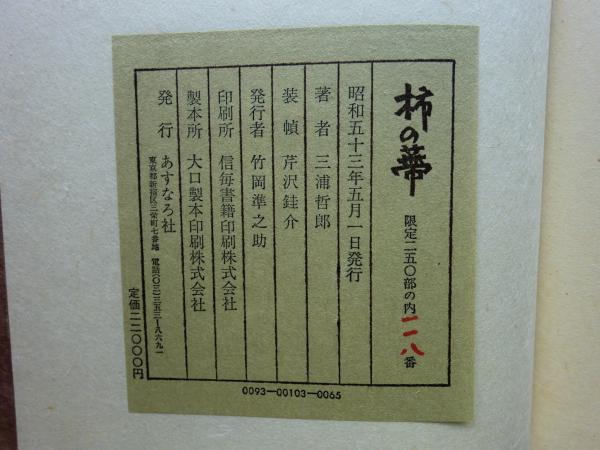 柿の蔕 限定二五〇部の内一一八番
昭和五十三年五月一日発行
著者 三浦哲郎
装幀 芹沢銈介
発行者 竹岡準之助
印刷所 信毎書籍印刷株式会社
製本所 大口製本印刷株式会社
発行 あすなろ社
東京都新宿区三栄町七番地 電話(〇三)三五三―八六九一
定価二二〇〇〇円
0093―00103―0065